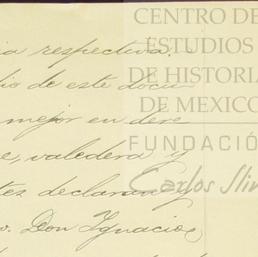 CENTRO DE
ESTUDIOS
DE HISTORIA
DE MEXICO
FUNDACIÓ
Carlos Slim
ia respectiva.
io de este docu
mejor en dere
e, valedera y
tes declaran y
o. Don Ygnacio